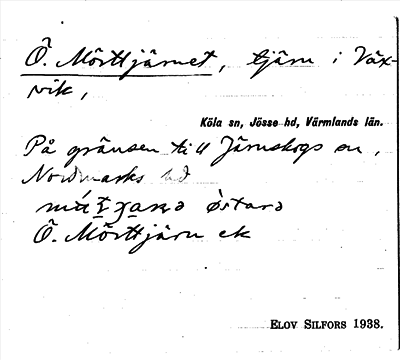 Ö. Mörttjärnet, tjärn i Väx-
vik,
Köla sn, Jösse hd, Värmlands län.
På gränsen till Järnskogs sn,
Nordmarks hd
östarə
Ö. Mörttjärn ek
ELOV SILFORS 1938.